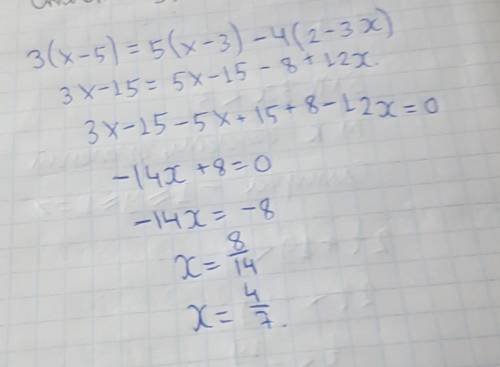 3(x-5) = 5(x-3) - 4(2-3x)
3x-15 = 5x-15 - 8 + 12x.
3x-15-5x+15+8-12x=0
-14x +8=0
-14x = -8
x = 8/14
x = 4/7.